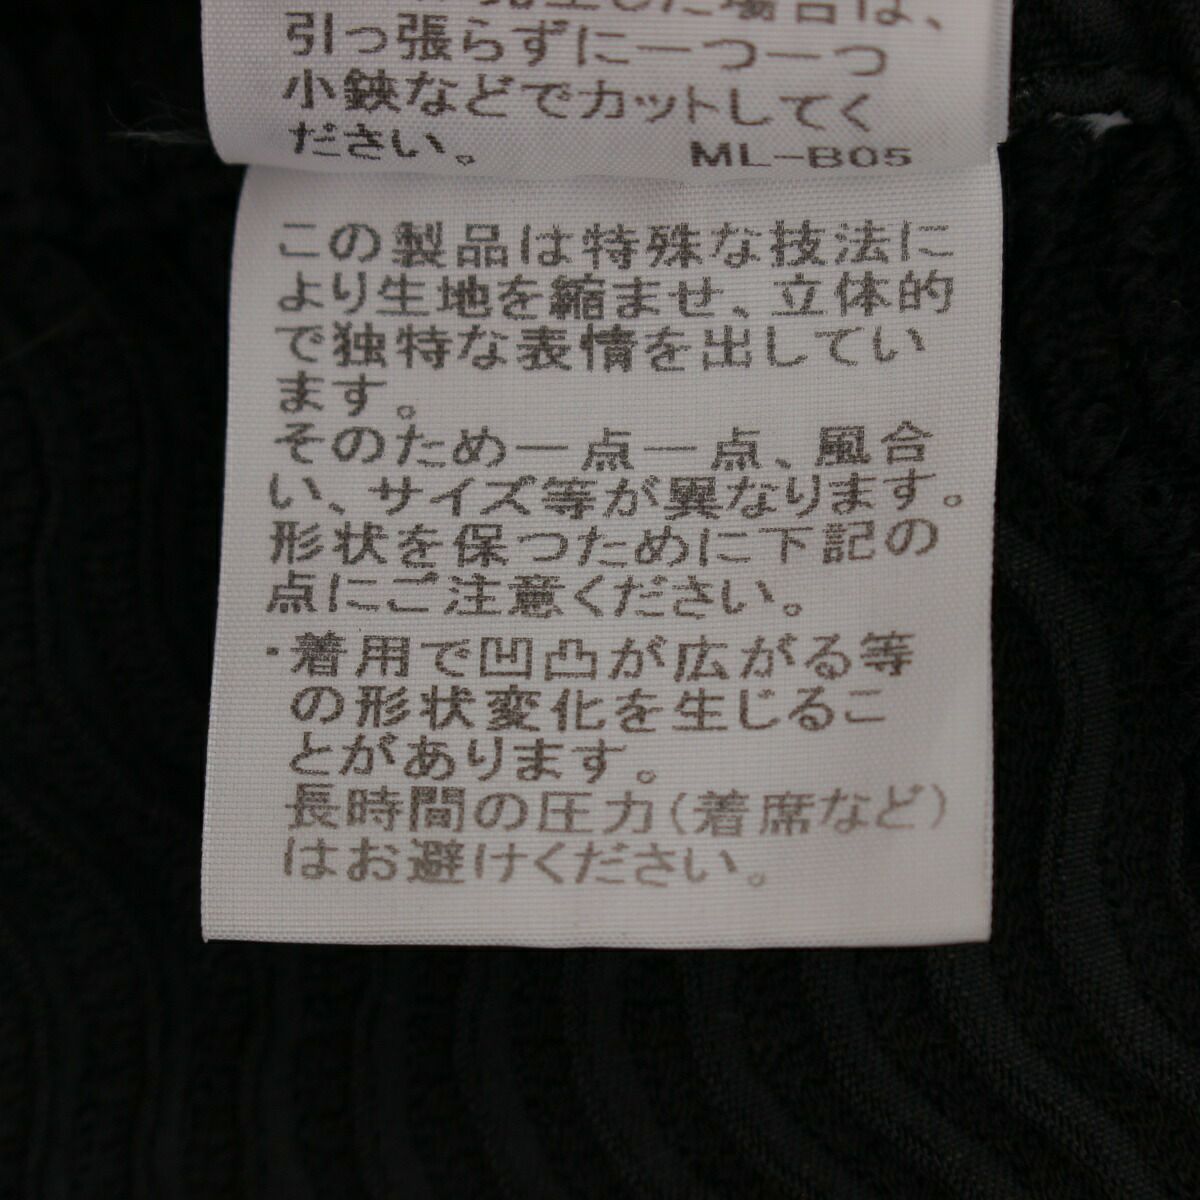 した場合は、
引っ張らずに一つ一つ
小鋏などでカットしてく
ださい。 ML-B05
この製品は特殊な技法に
より生地を縮ませ、立体的
で独特な表情を出してい
ます。
そのため一点一点、風合
い、サイズ等が異なります。
形状を保つために下記の
点にご注意ください。
・着用で凹凸が広がる等
の形状変化を生じるこ
とがあります。
長時間の圧力(着席など)
はお避けください。